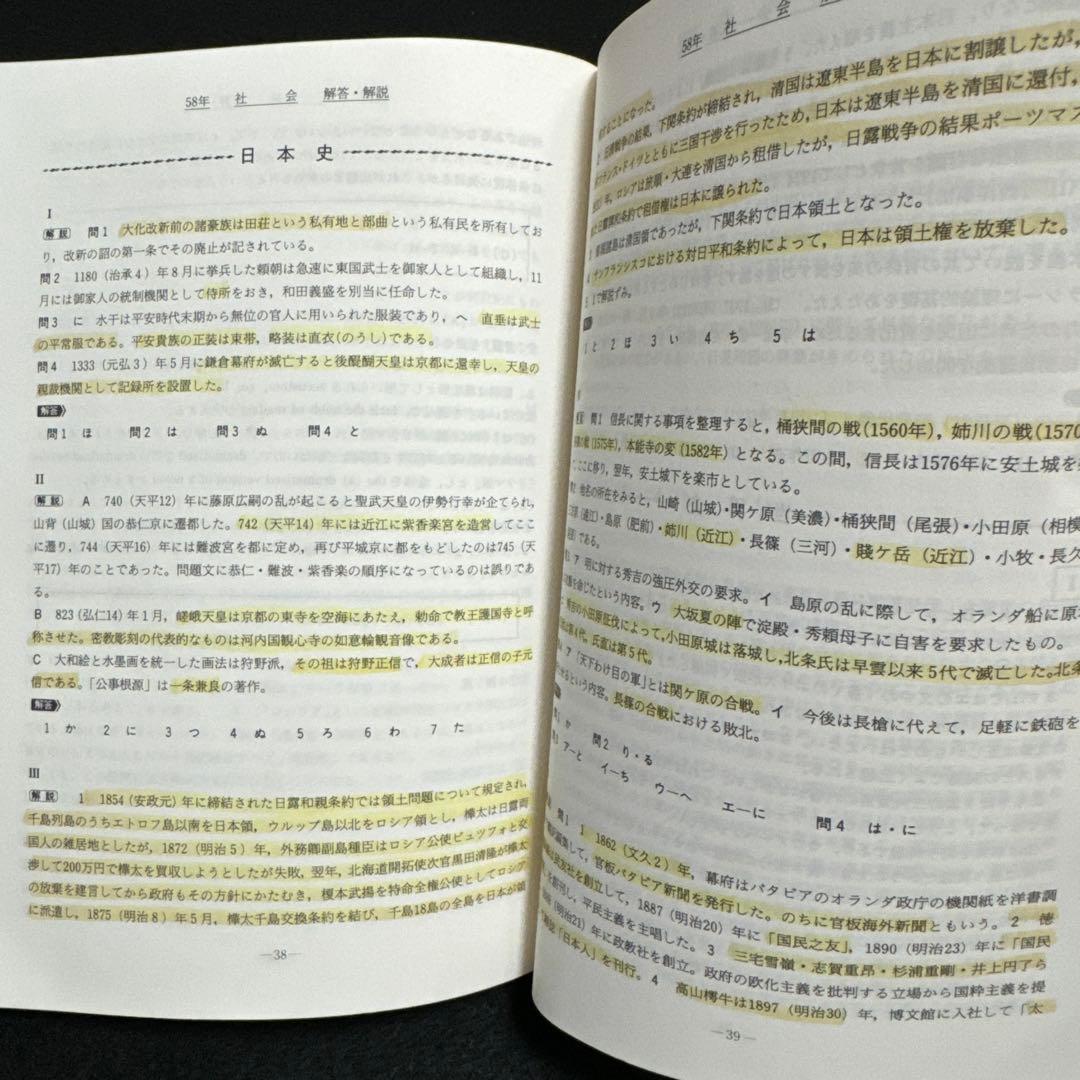 58年 社 会 解答・解説
日本史
I
解説 問1 大化改新前の諸豪族は田荘という私有地と部曲という私有民を所有してお
り，改新の詔の第一条でその廃止が記されている。
問2 1180（治承4）年8月に挙兵した頼朝は急速に東国武士を御家人として組織し，11
月には御家人の統制機関として侍所をおき，和田義盛を別当に任命した。
問3 に 水干は平安時代末期から無位の官人に用いられた服装であり，へ 直垂は武士
の平常服である。平安貴族の正装は束帯，略装は直衣(のうし)である。
問4 1333（元弘3）年5月に鎌倉幕府が滅亡すると後醍醐天皇は京都に還幸し，天皇の
親裁機関として記録所を設置した。
解答
問1 ほ 問2 は 問3 ぬ 問4 と
II
解説 A 740（天平12）年に藤原広嗣の乱が起こると聖武天皇の伊勢行幸が企てられ，
山背（山城）国の恭仁京に遷都した。742（天平14）年には近江に紫香楽宮を造営してここ
に遷り，744（天平16）年には難波宮を都に定め，再び平城京に都をもどしたのは745（天
平17）年のことであった。問題文に恭仁・難波・紫香楽の順序になっているのは誤りであ
る。
B 823（弘仁14）年1月，嵯峨天皇は京都の東寺を空海にあたえ，勅命で教王護国寺と呼
称させた。密教彫刻の代表的なものは河内国観心寺の如意輪観音像である。
C 大和絵と水墨画を統一した画法は狩野派，その祖は狩野正信で，大成者は正信の子元
信である。「公事根源」は一条兼良の著作。
解答
1 か 2 に 3 つ 4 ぬ 5 ろ 6 わ 7 た
III
解説 1 1854（安政元）年に締結された日露和親条約では領土問題について規定され，
千島列島のうちエトロフ島以南を日本領，ウルップ島以北をロシア領とし，樺太は日露両
国人の雑居地としたが，1872（明治5）年，外務卿副島種臣はロシア公使ビュツフォと交
渉して200万円で樺太を買収しようとしたが失敗，翌年，北海道開拓使次官黒田清隆が樺太
の放棄を建言してから政府もその方針にかたむき，榎本武揚を特命全権公使としてロシア
に派遣し，1875（明治8）年5月，樺太千島交換条約を結び，千島18島の全島を日本が領
—38—
58年 社 会
することになった。
日清戦争の結果，下関条約が締結され，清国は遼東半島を日本に割譲したが，
フランス・ドイツとともに三国干渉を行ったため，日本は遼東半島を清国に還付，
年，ロシアは旅順・大連を清国から租借したが，日露戦争の結果ポーツマス
租借権は日本に譲られた。
は清国領であったが，下関条約で日本領土となった。
サンフランシスコにおける対日平和条約によって，日本は領土権を放棄した。
5 1で解説ずみ。
1 と 2 ほ 3 い 4 ち 5 は
問1 信長に関する事項を整理すると，桶狭間の戦(1560年)，姉川の戦(1570
の戦(1575年)，本能寺の変(1582年)となる。この間，信長は1576年に安土城を
ここに移り，翌年，安土城下を楽市としている。
他名の所在をみると，山崎（山城）・関ケ原（美濃）・桶狭間（尾張）・小田原（相模
（遠江）・島原（肥前）・姉川（近江）・長篠（三河）・賤ケ岳（近江）・小牧・長久
である。
ア 明に対する秀吉の強圧外交の要求。イ 島原の乱に際して，オランダ船に原
を命じたという内容。ウ 大坂夏の陣で淀殿・秀頼母子に自害を要求したもの。
の小田原征伐によって，小田原城は落城し，北条氏は早雲以来5代で滅亡した。北条
第4代。氏直は第5代。
ア「天下わけ目の軍」とは関ケ原の合戦。イ 今後は長槍に代えて，足軽に鉄砲を
せるという内容。長篠の合戦における敗北。
か 問2 り・る
アーと イーち ウーへ エーに 問4 は・に
問1 1 1862（文久2）年，幕府はバタビアのオランダ政庁の機関紙を洋書調
編集して，官板バタビア新聞を発行した。のちに官板海外新聞ともいう。2 徳
民友社を創立して，1887（明治20）年に「国民之友」，1890（明治23）年に「国民
創刊し，平民主義を主唱した。3 三宅雪嶺・志賀重昂・杉浦重剛・井上円了ら
（明治21）年に政教社を創立。政府の欧化主義を批判する立場から国粋主義を提
「日本人」を刊行。4 高山樗牛は1897（明治30）年，博文館に入社して「太
—39—